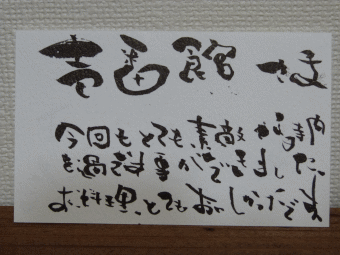 壱番館 さま
今回もとても、素敵な時間
を過ごす事ができました。
お料理、とてもおいしかったです